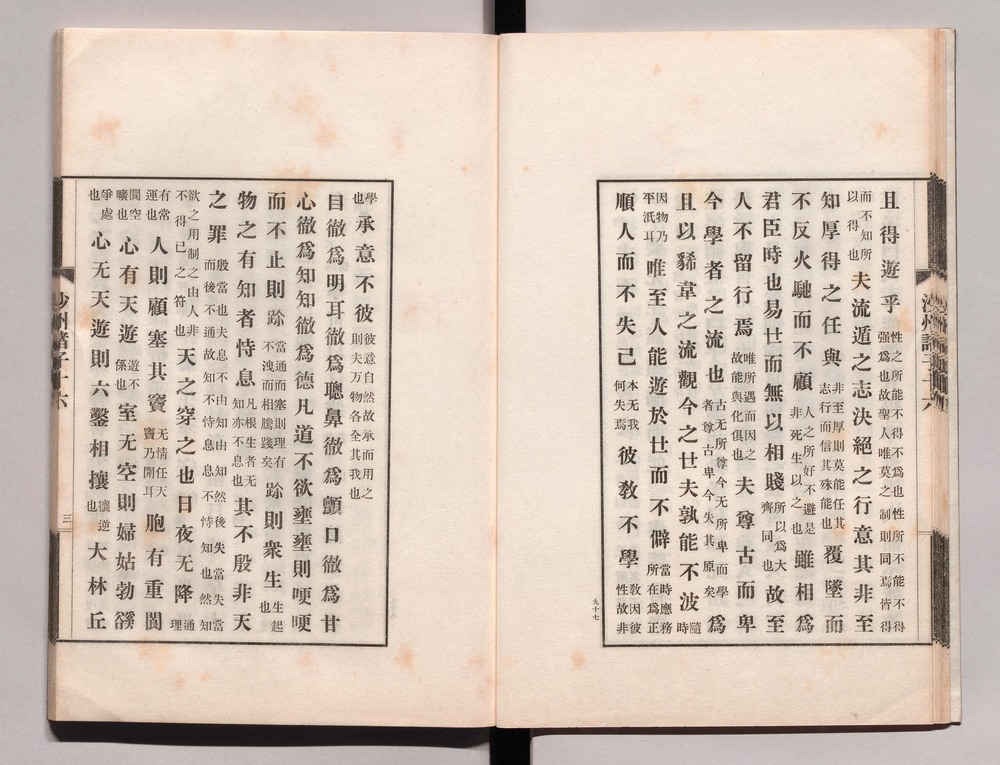 且得遊乎性之所能不得不爲也性所不能不得强爲也故聖人唯莫之制則同焉皆得
而不知所以得也夫流遁之志決絕之行意其非至
知厚得之任與非至厚則莫能任其志行而信其殊能也覆墜而
不反火馳而不顧人之所好不避是非死生以之也雖相爲
君臣時也易世而無以相賤所以爲大齊同也故至
人不留行焉唯所遇而因之故能與化俱也夫尊古而卑
今學者之流也古无所尊今无所卑而學者尊古卑今失其原矣爲
且以豨韋之流觀今之世夫孰能不波隨時
因物乃平泯耳唯至人能遊於世而不僻當時應務所在爲正
順人而不失己本无我何失焉彼敎不學敎因彼性故非
九十七
學也承意不彼彼意自然故承而用之則夫万物各全其我也
目徹爲明耳徹爲聰鼻徹爲顫口徹爲甘
心徹爲知知徹爲德凡道不欲壅壅則哽哽
而不止則跈當通而塞則理有不洩而相騰踐矣跈則衆生生起也
物之有知者恃息凡根生者无知亦不恃息也其不殷非天
之罪殷當也夫息不由知由知然後失當失當而後不通故知恃息息不恃知也然知
欲之用制之由人非不得已之符也天之穿之也日夜无降通理
有常運也人則顧塞其竇无情任天竇乃開耳胞有重閬
閬空曠也心有天遊遊不係也室无空則婦姑勃豀
爭處也心无天遊則六鑿相攘攘逆也大林丘
沙州諸子十六
三